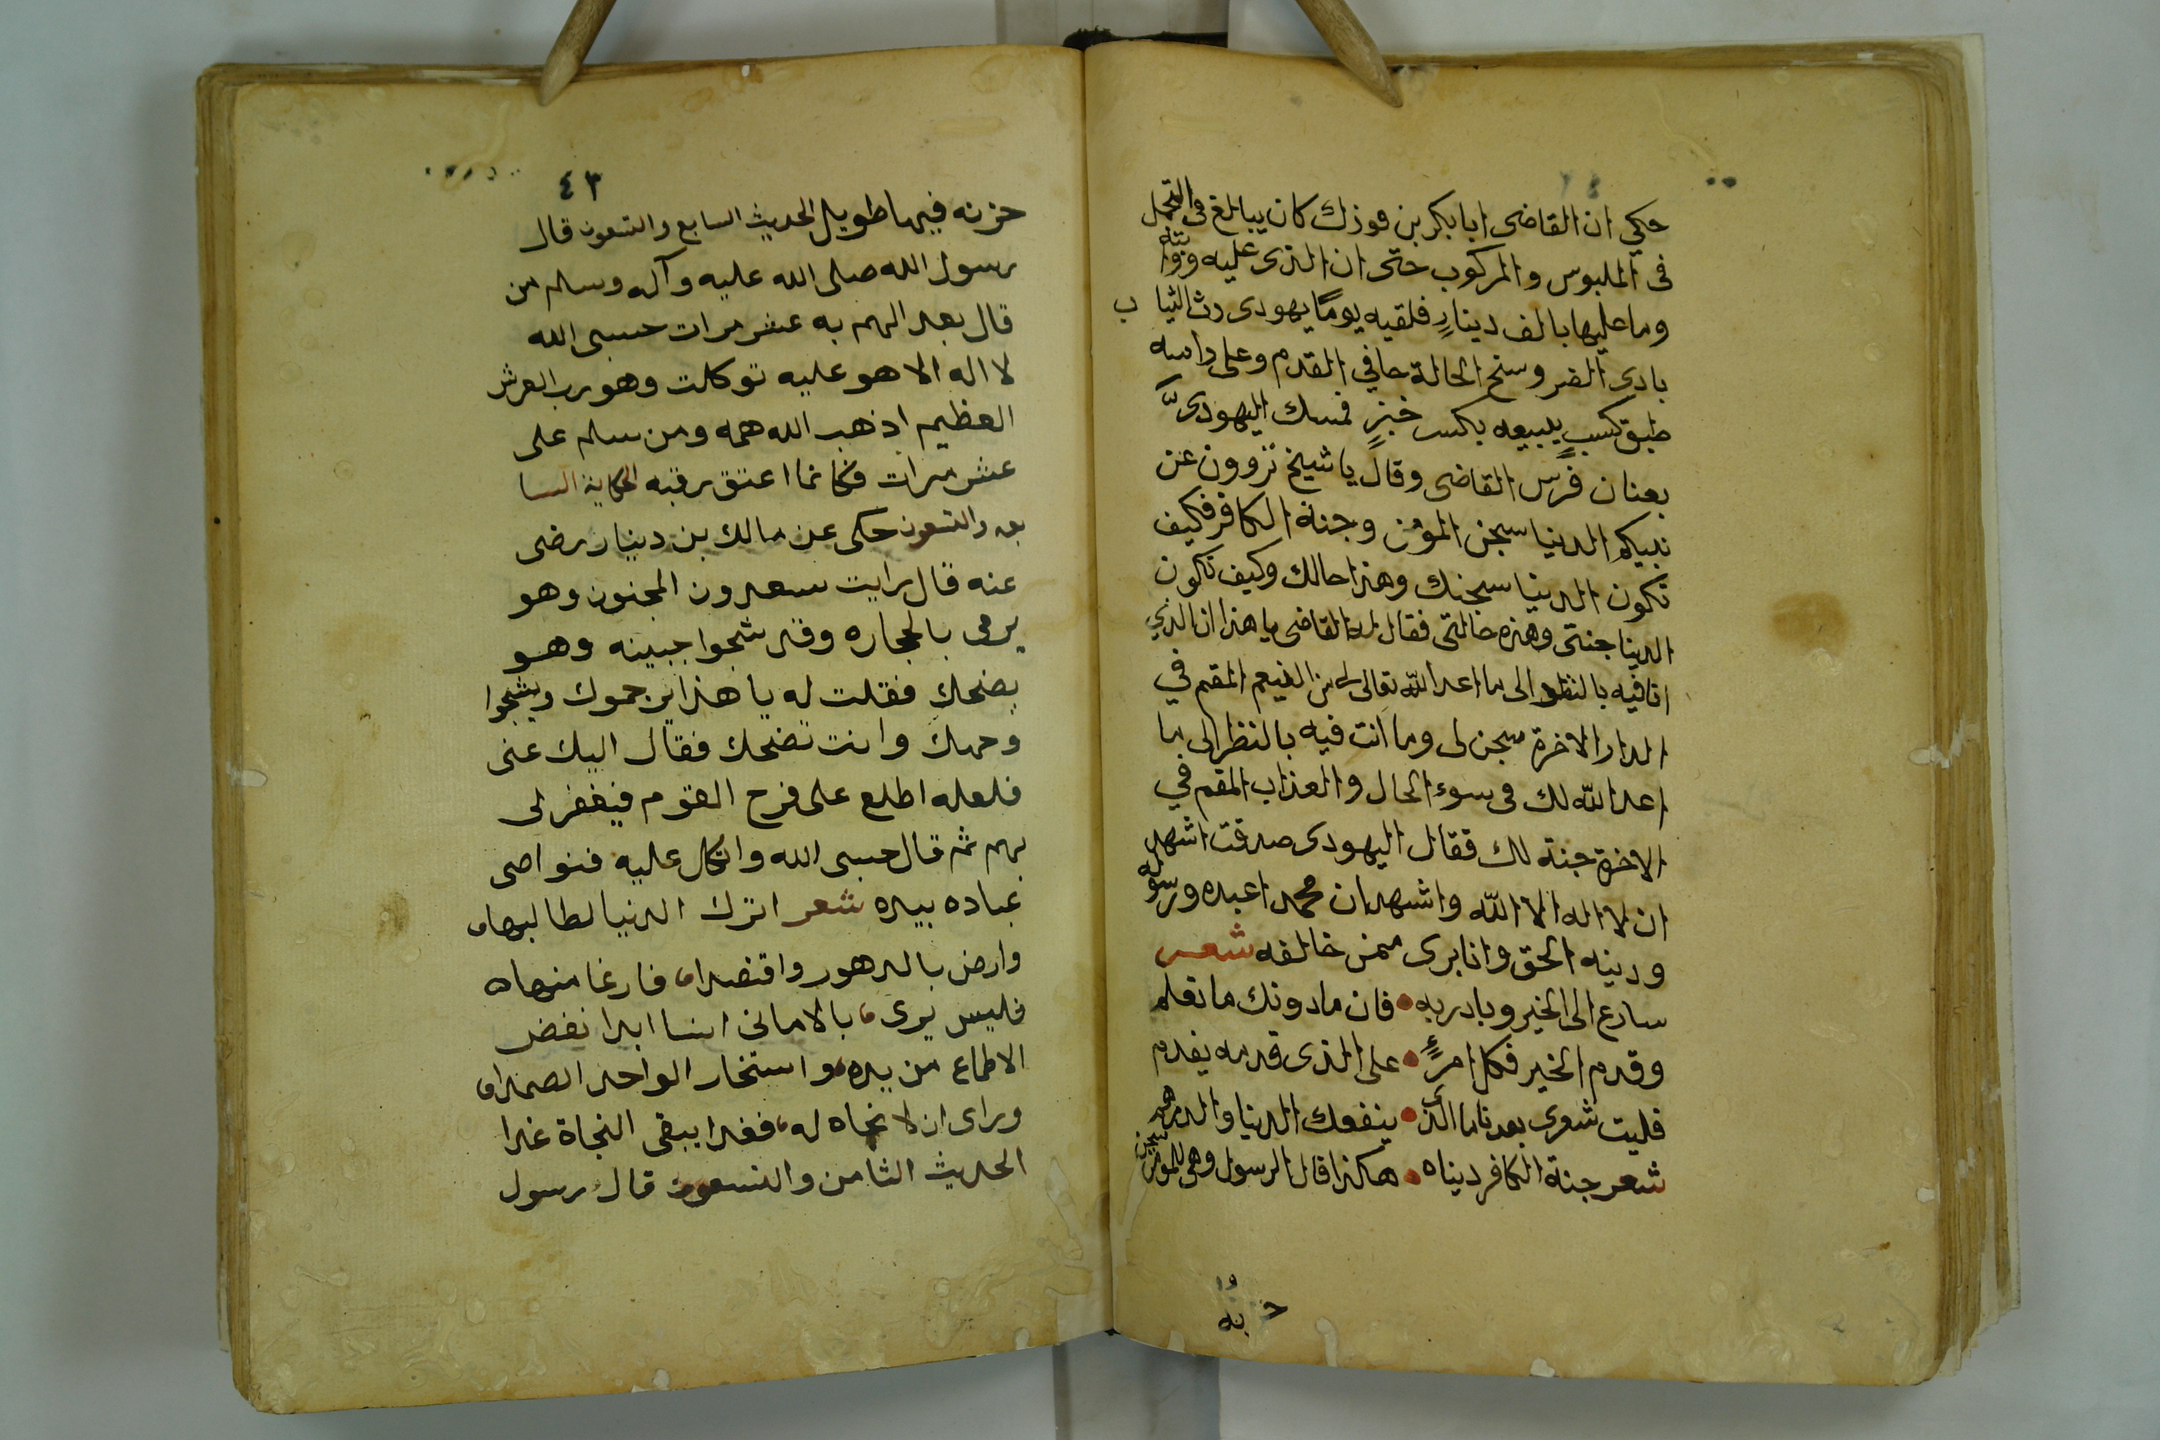 حكي ان القاضى ابا بكر بن فوزك كان يبالغ فى التجمل
فى الملبوس والمركوب حتى ان الذى عليه
وما عليها بالف دينارٍ فلقيه يومًا يهودى رث الثيا ب
بادى الضر وسخ الحالة حافي القدم وعلى راسه
طبق كسبٍ يبيعه بكسر خبزٍ فمسك اليهودىّ
بعنان فرس القاضى وقال يا شيخ تروون عن
نبيكم الدنيا سجن المؤمن وجنة الكافر فكيف
تكون الدنيا سجنك وهذا حالك وكيف تكون
الدينا جنتى وهذه حالتى فقال له القاضى يا هذا ان الذي
انا فيه بالنظر الى ما اعد الله تعالى لى من النعيم المقيم في
الدار الاخرة سجن لى وما انت فيه بالنظر الى ما
اعد الله لك فى سوء الحال والعذاب المقيم في
الاخرة جنة لك فقال اليهودى صدقت اشهد
ان لا اله الا الله واشهد ان محمدا عبده ورسوله
ودينه الحق وانا برى ممن خالفه شعر
سارع الى الخير وبادر به • فان ما دونك ما تعلم
وقدم الخير فكل امرءٍ • على الذى قدمه يقدم
فليت شعرى بعد ناما الذى • ينفعك الدنيا والدرهم
شعر جنة الكافر ديناه • هكذا قال الرسول وهى للمومن سجن
حزنه
٤٣
حزنه فيها طويل الحديث السابع والتسعون قال
رسول الله صلى الله عليه وآله وسلم من
قال بعد الهم به عشر مرات حسبى الله
لا اله الا هو عليه توكلت وهو رب العرش
العظيم اذهب الله همه ومن سلم على
عشر مرات فكانما اعتق رقبه الحكاية السا
بعه والتسعون حكى عن مالك بن دينار رضى
عنه قال رايت سعدون المجنون وهو
يرمى بالحجاره وقد شجوا جبينه وهو
يضحك فقلت له يا هذا يرجموك ويشجوا
وجهك وانت تضحك فقال اليك عنى
فلعله اطلع على فرح القوم فيغفر لى
بهم ثم قال حسبى الله واتكل عليه فنواصى
عباده بيده شعر اترك الدنيا لطالبها
وارض بالدهور واقتصدا فارغا منهاه
فليس يرى بالامانى انسا ابدا نفض
الاطماع من يده واستخار الواحد الصمدا
وراى ان لا نجاه له فغدا يبقى النجاة غدا
الحديث الثامن والتسعون قال رسول